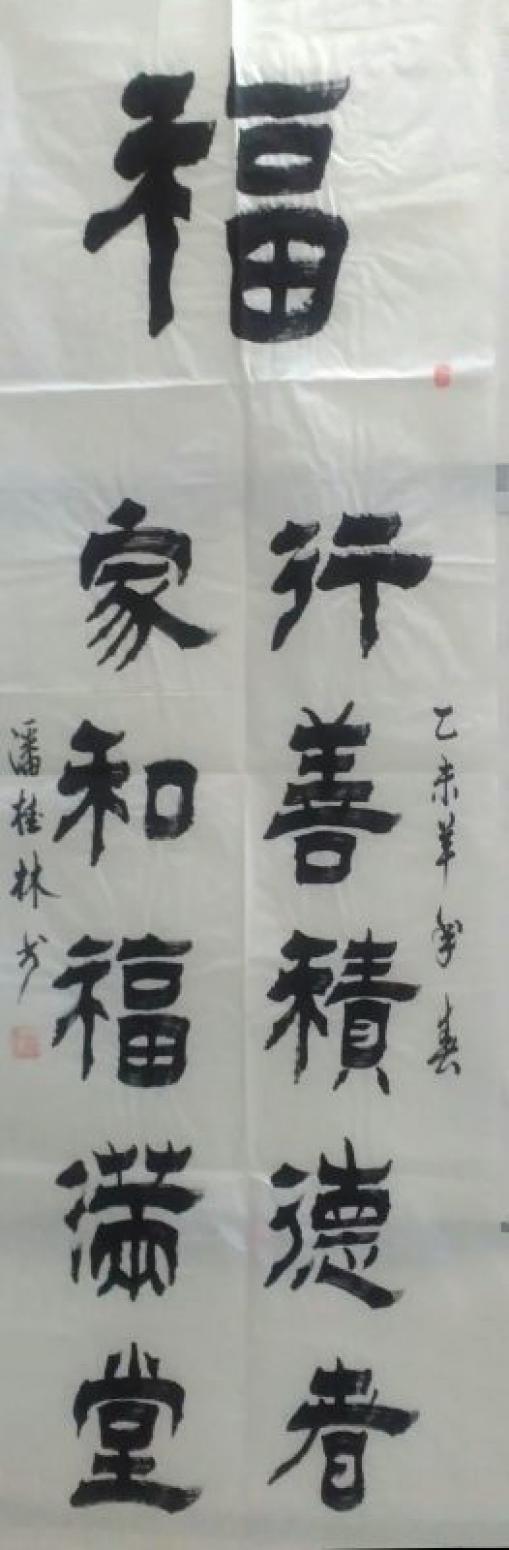 福
乙未羊年春
行善積德者
家和福滿堂
潘桂林书